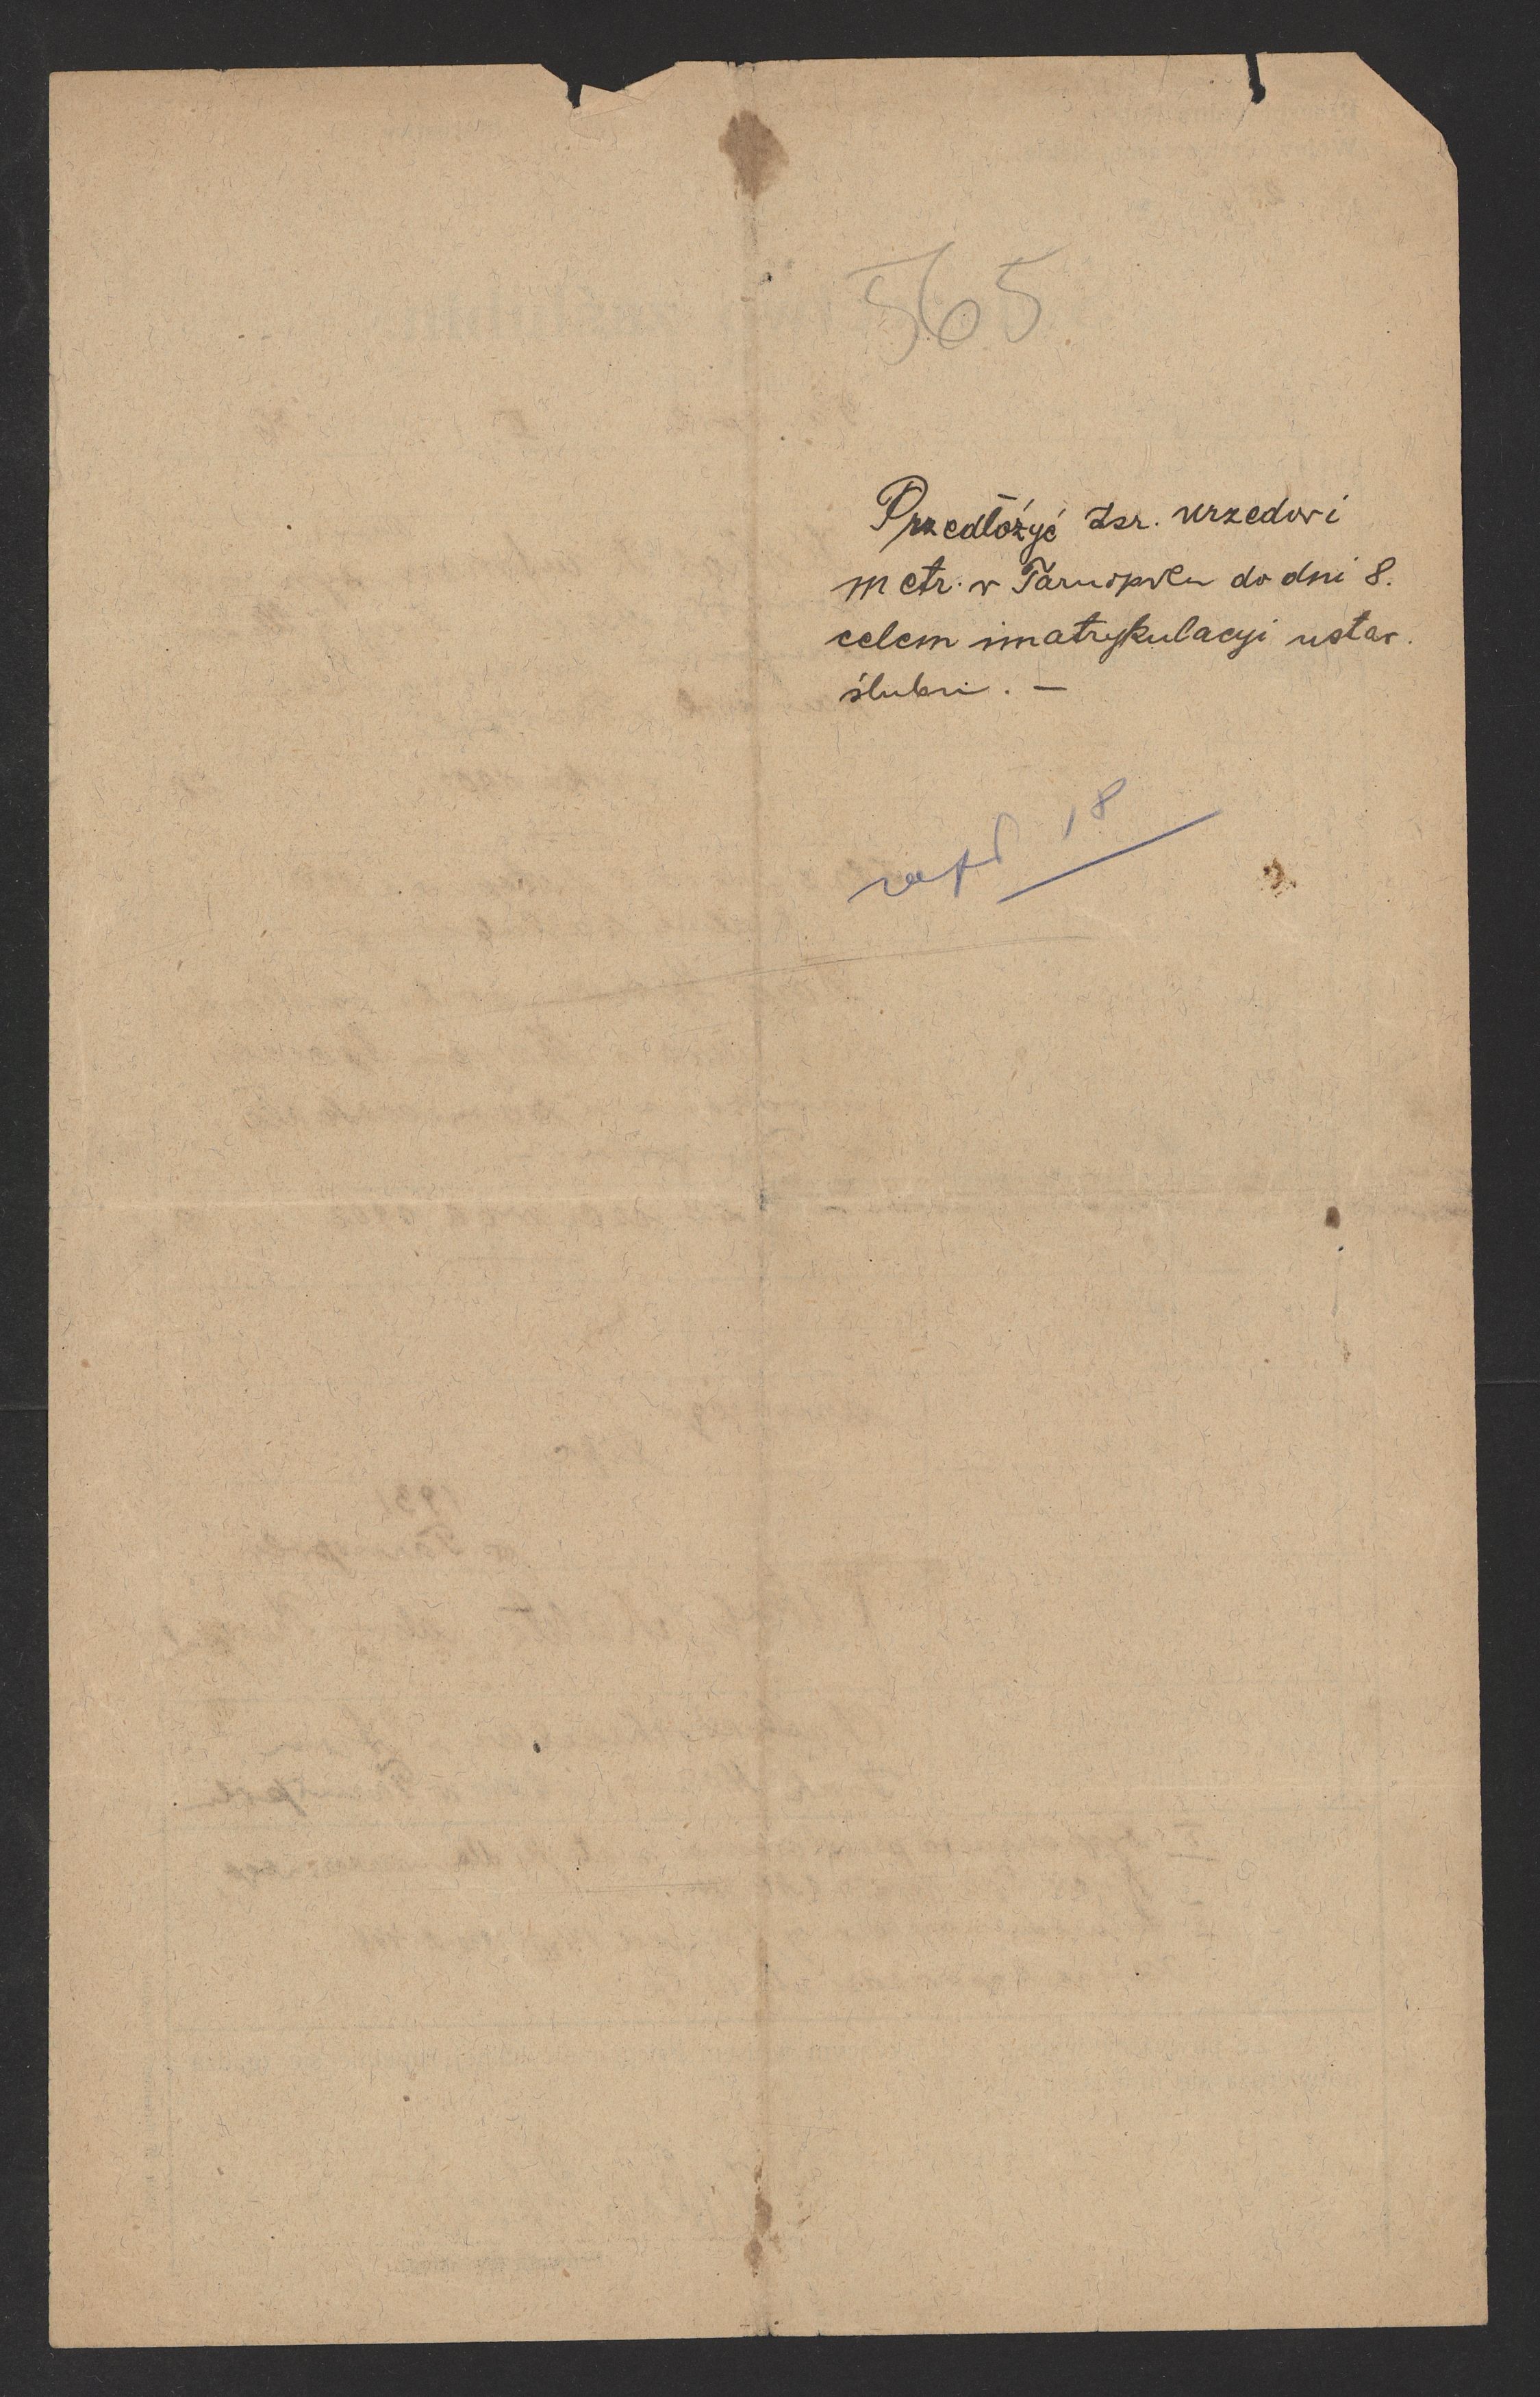 565
Przedłożyć Izr. urzedowi
metr. w Tarnopolu do dni 8.
celem imatrykulacyi ustaw.
ślubu. —
18